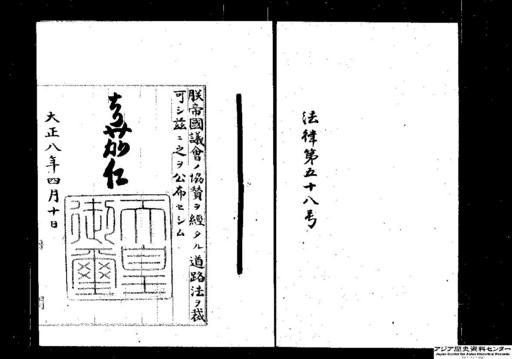 法律第五十八号
朕帝國議會ノ協贊ヲ經タル道路法ヲ裁
可シ茲ニ之ヲ公布セシム
嘉仁
天皇御璽
大正八年四月十日
アジア歴史資料センター
Japan Center for Asian Historical Records